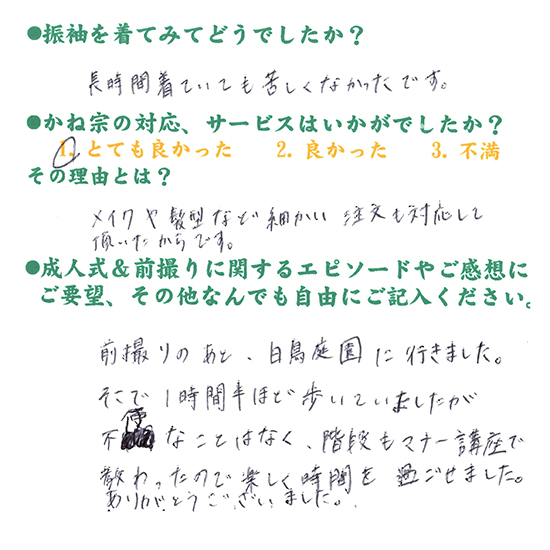 ●振袖を着てみてどうでしたか？
長時間着ていても苦しくなかったです。
●かね宗の対応、サービスはいかがでしたか？
1. とても良かった 2. 良かった 3. 不満
その理由とは？
メイクや髪型など細かい注文も対応して
頂いたからです。
●成人式＆前撮りに関するエピソードやご感想に
ご要望、その他なんでも自由にご記入ください。
前撮りのあと、白鳥庭園に行きました。
そこで1時間半ほど歩いていましたが
不便なことはなく、階段もマナー講座で
教わったので楽しく時間を過ごせました。
ありがとうございました。